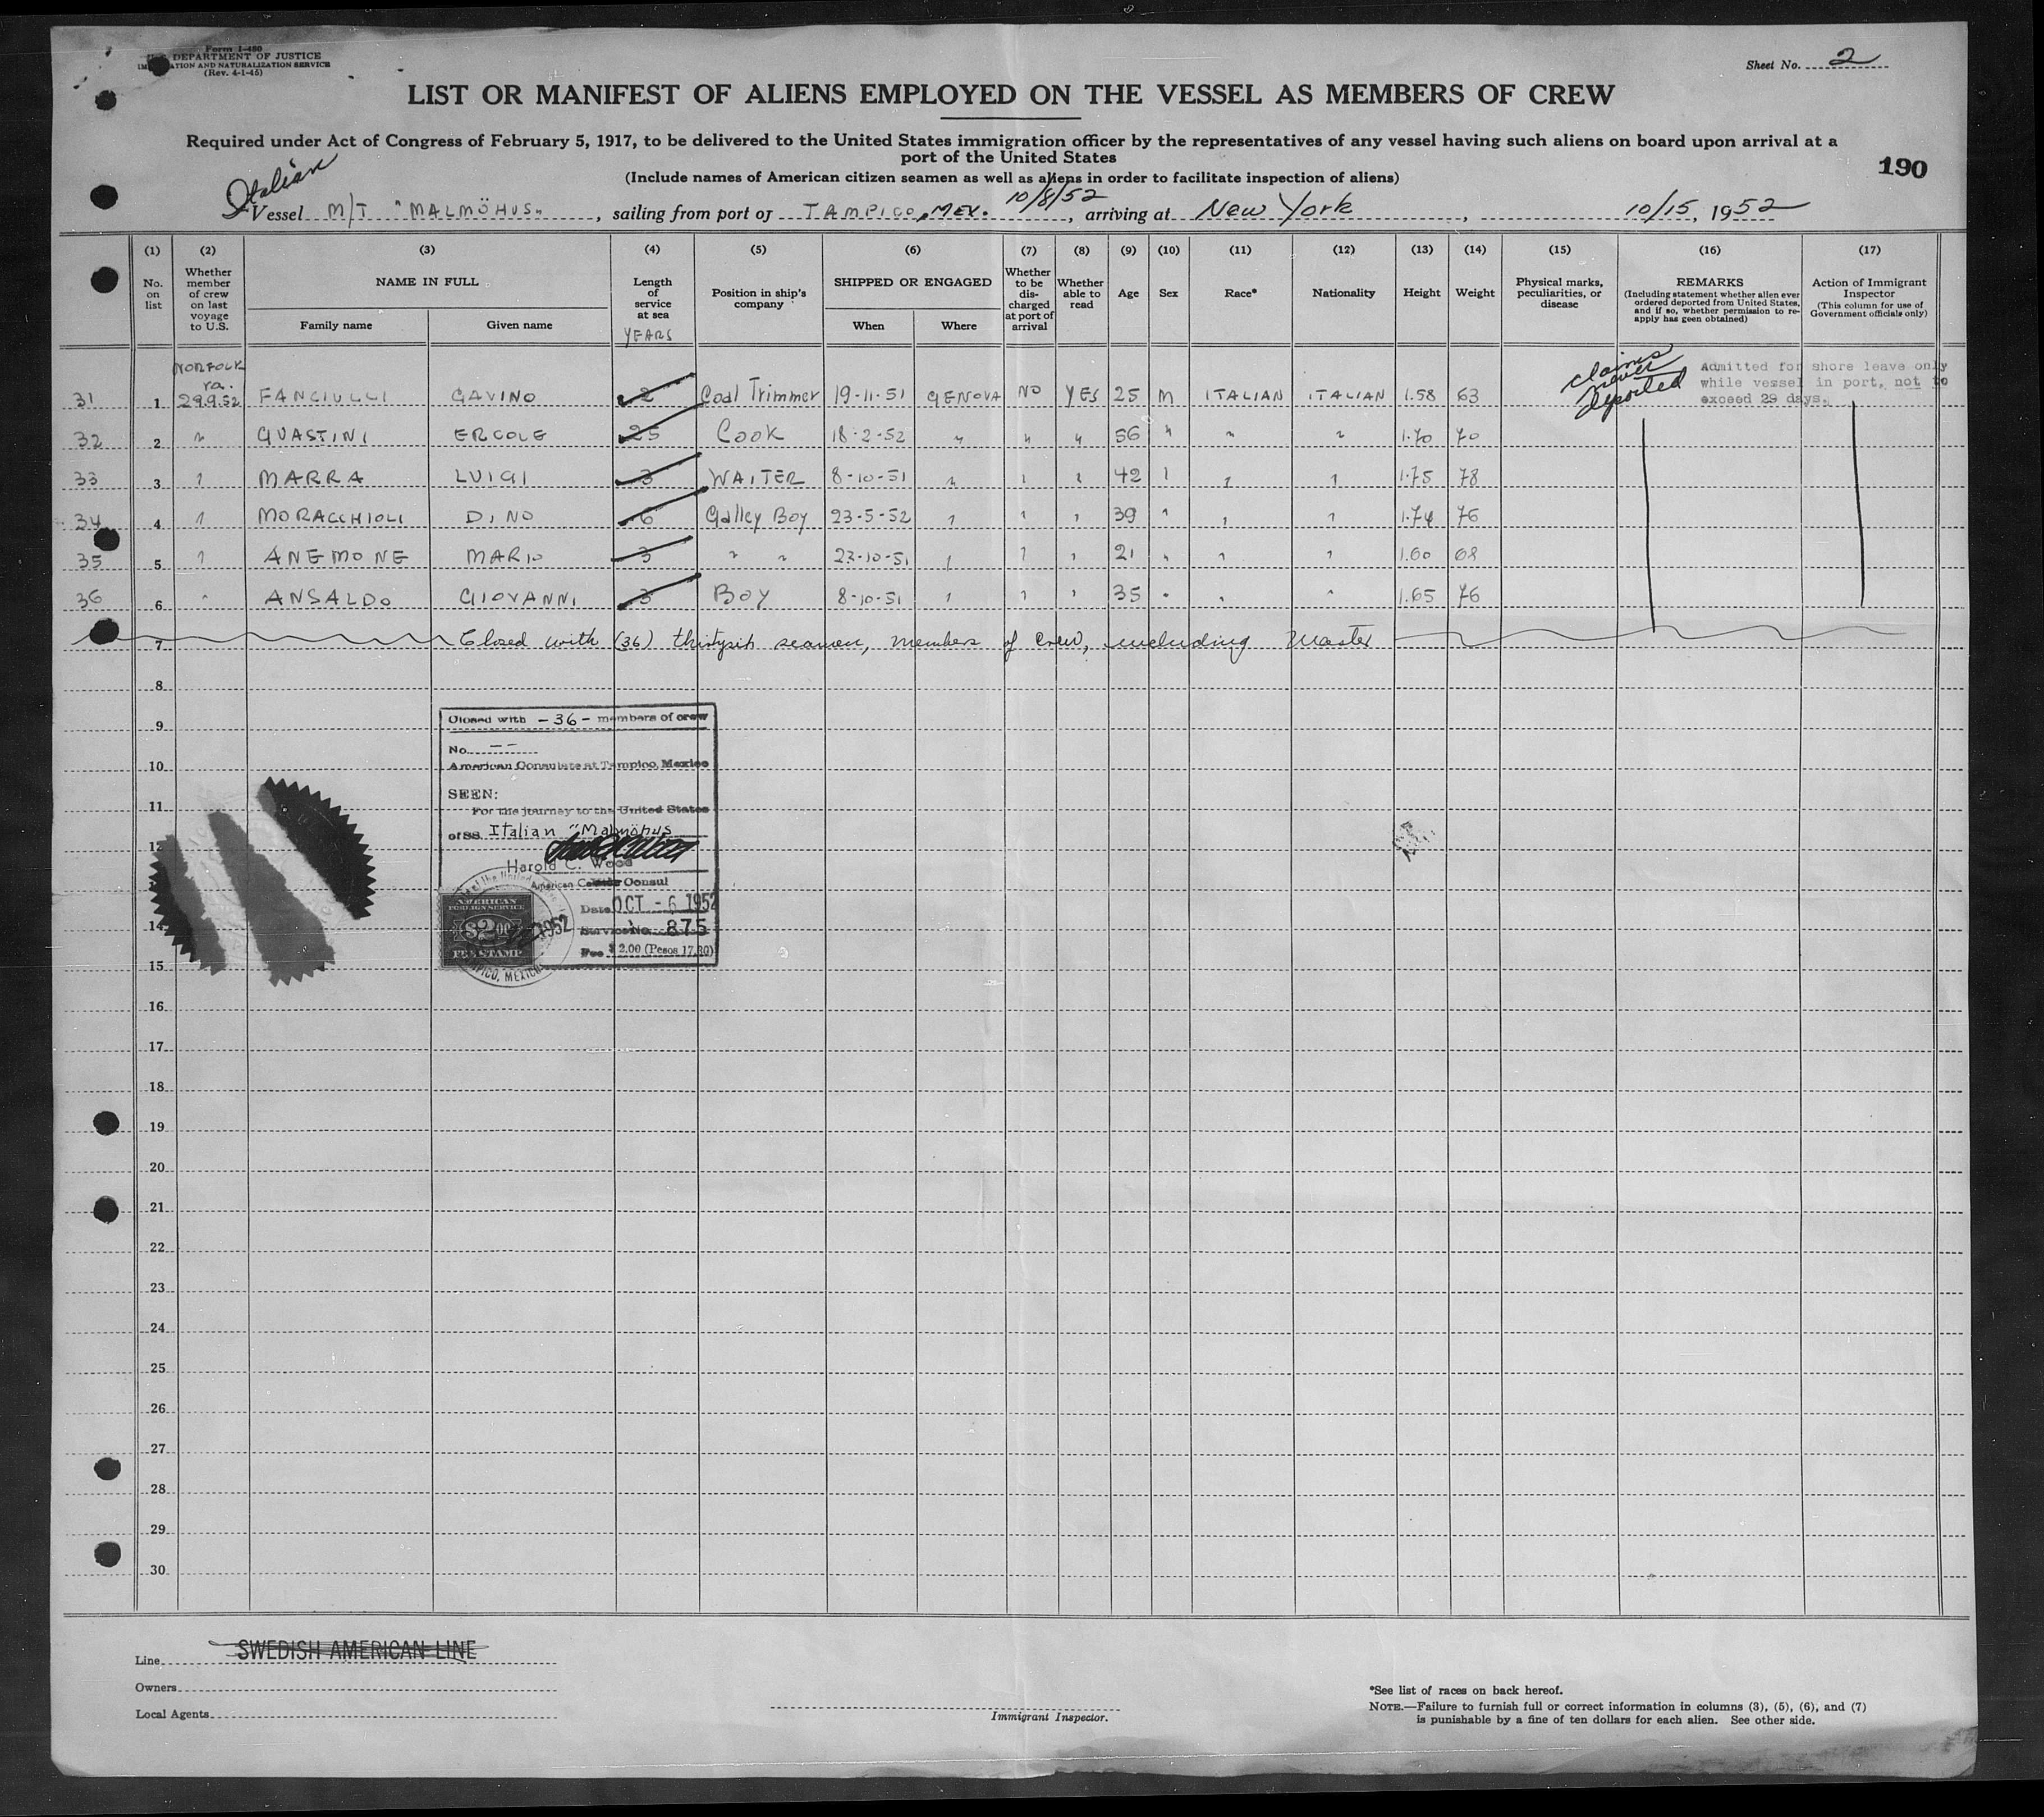 Form I-480
DEPARTMENT OF JUSTICE
IMMIGRATION AND NATURALIZATION SERVICE
(Rev. 4-1-45)
Sheet No. 2
LIST OR MANIFEST OF ALIENS EMPLOYED ON THE VESSEL AS MEMBERS OF CREW
Required under Act of Congress of February 5, 1917, to be delivered to the United States immigration officer by the representatives of any vessel having such aliens on board upon arrival at a
port of the United States
190
(Include names of American citizen seamen as well as aliens in order to facilitate inspection of aliens)
Italian
10/8/52
Vessel M/T "MALMÖHUS", sailing from port of TAMPICO, MEX., arriving at New York, 10/15, 1952
(1) (2) (3) (4) (5) (6) (7) (8) (9) (10) (11) (12) (13) (14) (15) (16) (17)
No. on list
Whether member of crew on last voyage to U.S.
NAME IN FULL
Family name
Given name
Length of service at sea
YEARS
Position in ship's company
SHIPPED OR ENGAGED
When
Where
Whether to be discharged at port of arrival
Whether able to read
Age
Sex
Race*
Nationality
Height
Weight
Physical marks, peculiarities, or disease
REMARKS
(Including statement whether alien ever ordered deported from United States, and if so, whether permission to re-apply has geen obtained)
Action of Immigrant Inspector
(This column for use of Government officials only)
NORFOLK
va.
31 1 29.9.52 FANCIULLI GAVINO 2 Coal Trimmer 19-11-51 GENOVA NO YES 25 M ITALIAN ITALIAN 1.58 63
claims never deported
Admitted for shore leave only
while vessel in port, not to
exceed 29 days.
32 2 " GUASTINI ERCOLE 25 Cook 18-2-52 " " " 56 " " " 1.70 70
33 3 " MARRA LUIGI 3 WAITER 8-10-51 " " " 42 " " " 1.75 78
34 4 " MORACCHIOLI DINO 6 Galley Boy 23-5-52 " " " 39 " " " 1.74 76
35 5 " ANEMONE MARIO 3 " " 23-10-51 " " " 21 " " " 1.60 68
36 6 " ANSALDO GIOVANNI 3 Boy 8-10-51 " " " 35 " " " 1.65 76
7 Closed with (36) thirtysix seamen, members of crew, including Master
8
9
10
11
12
13
14
15
16
17
18
19
20
21
22
23
24
25
26
27
28
29
30
Closed with -36- members of crew
No. --
American Consulate at Tampico, Mexico
SEEN:
For the journey to the United States
of SS. Italian "Malmöhus
Harold C. Wood
American Consul
Date OCT - 6 1952
Service No. 875
Fee $ 2.00 (Pesos 17.30)
AMERICAN
FOREIGN SERVICE
$2.00
FEE STAMP
1952
TAMPICO, MEXICO
Line SWEDISH AMERICAN LINE
Owners
Local Agents
Immigrant Inspector.
*See list of races on back hereof.
NOTE.—Failure to furnish full or correct information in columns (3), (5), (6), and (7)
is punishable by a fine of ten dollars for each alien. See other side.